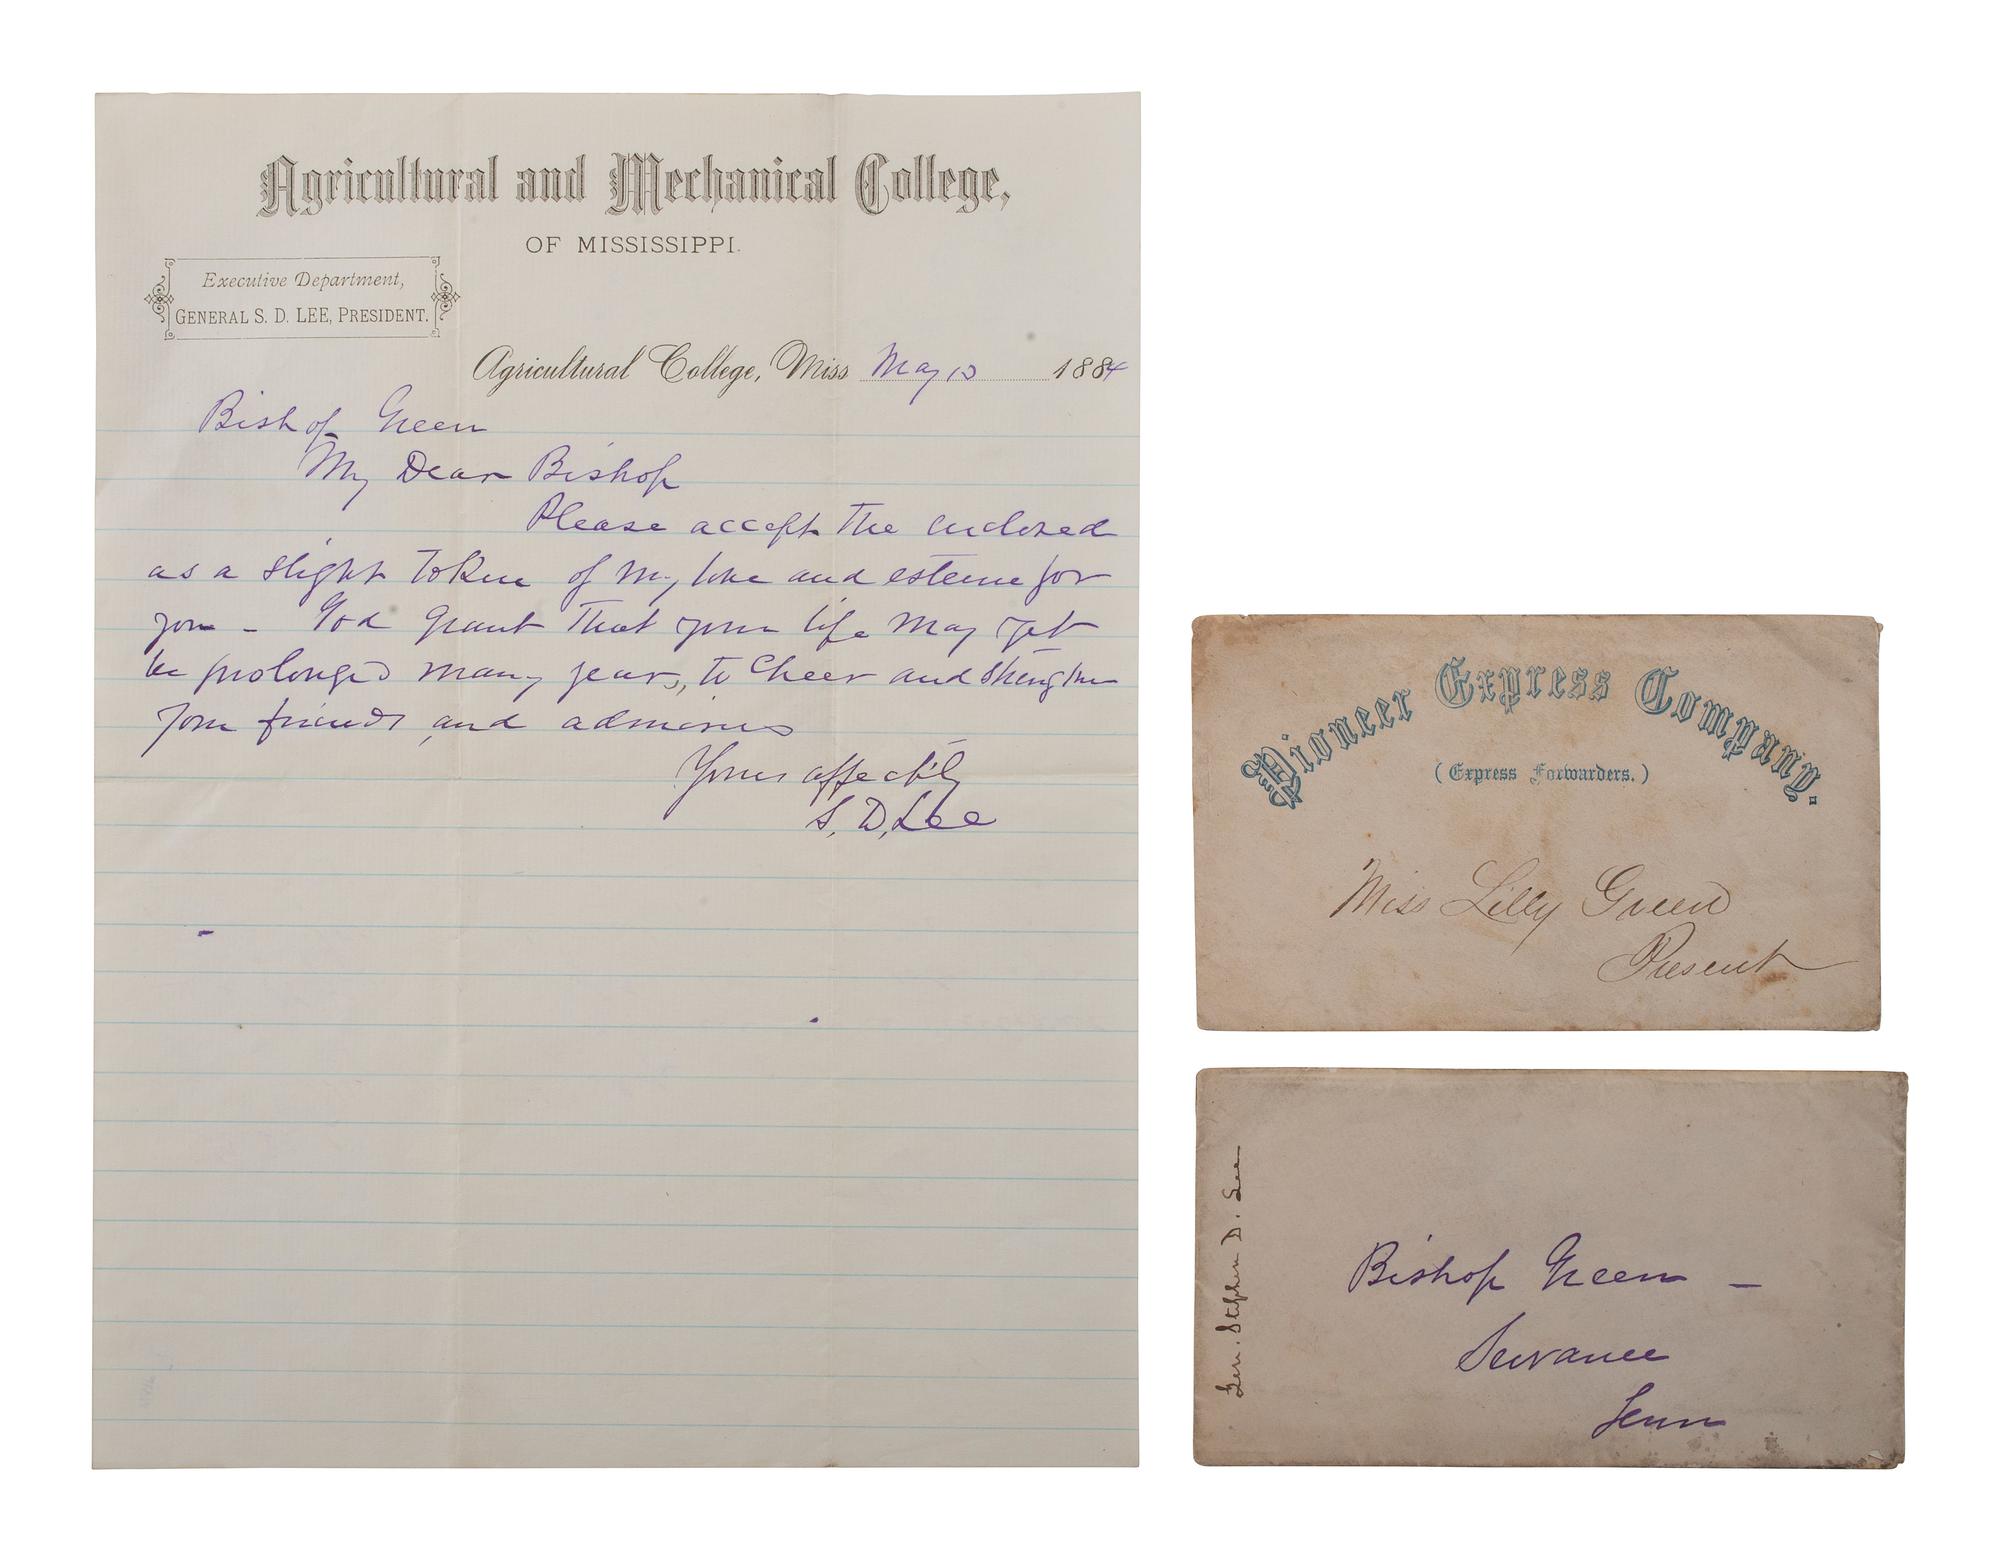 Agricultural and Mechanical College,
OF MISSISSIPPI.
Executive Department,
GENERAL S. D. LEE, PRESIDENT.
Agricultural College, Miss May 13 1884
Bishop Green
My Dear Bishop
Please accept the enclosed
as a slight token of my love and esteem for
you - God grant that your life may yet
be prolonged many years, to cheer and strengthen
your friends and admirers
Yours affectily
S. D. Lee
Pioneer Express Company.
(Express Forwarders.)
Miss Lilly Green
Present
Gen. Stephen D. Lee
Bishop Green -
Sewanee
Tenn